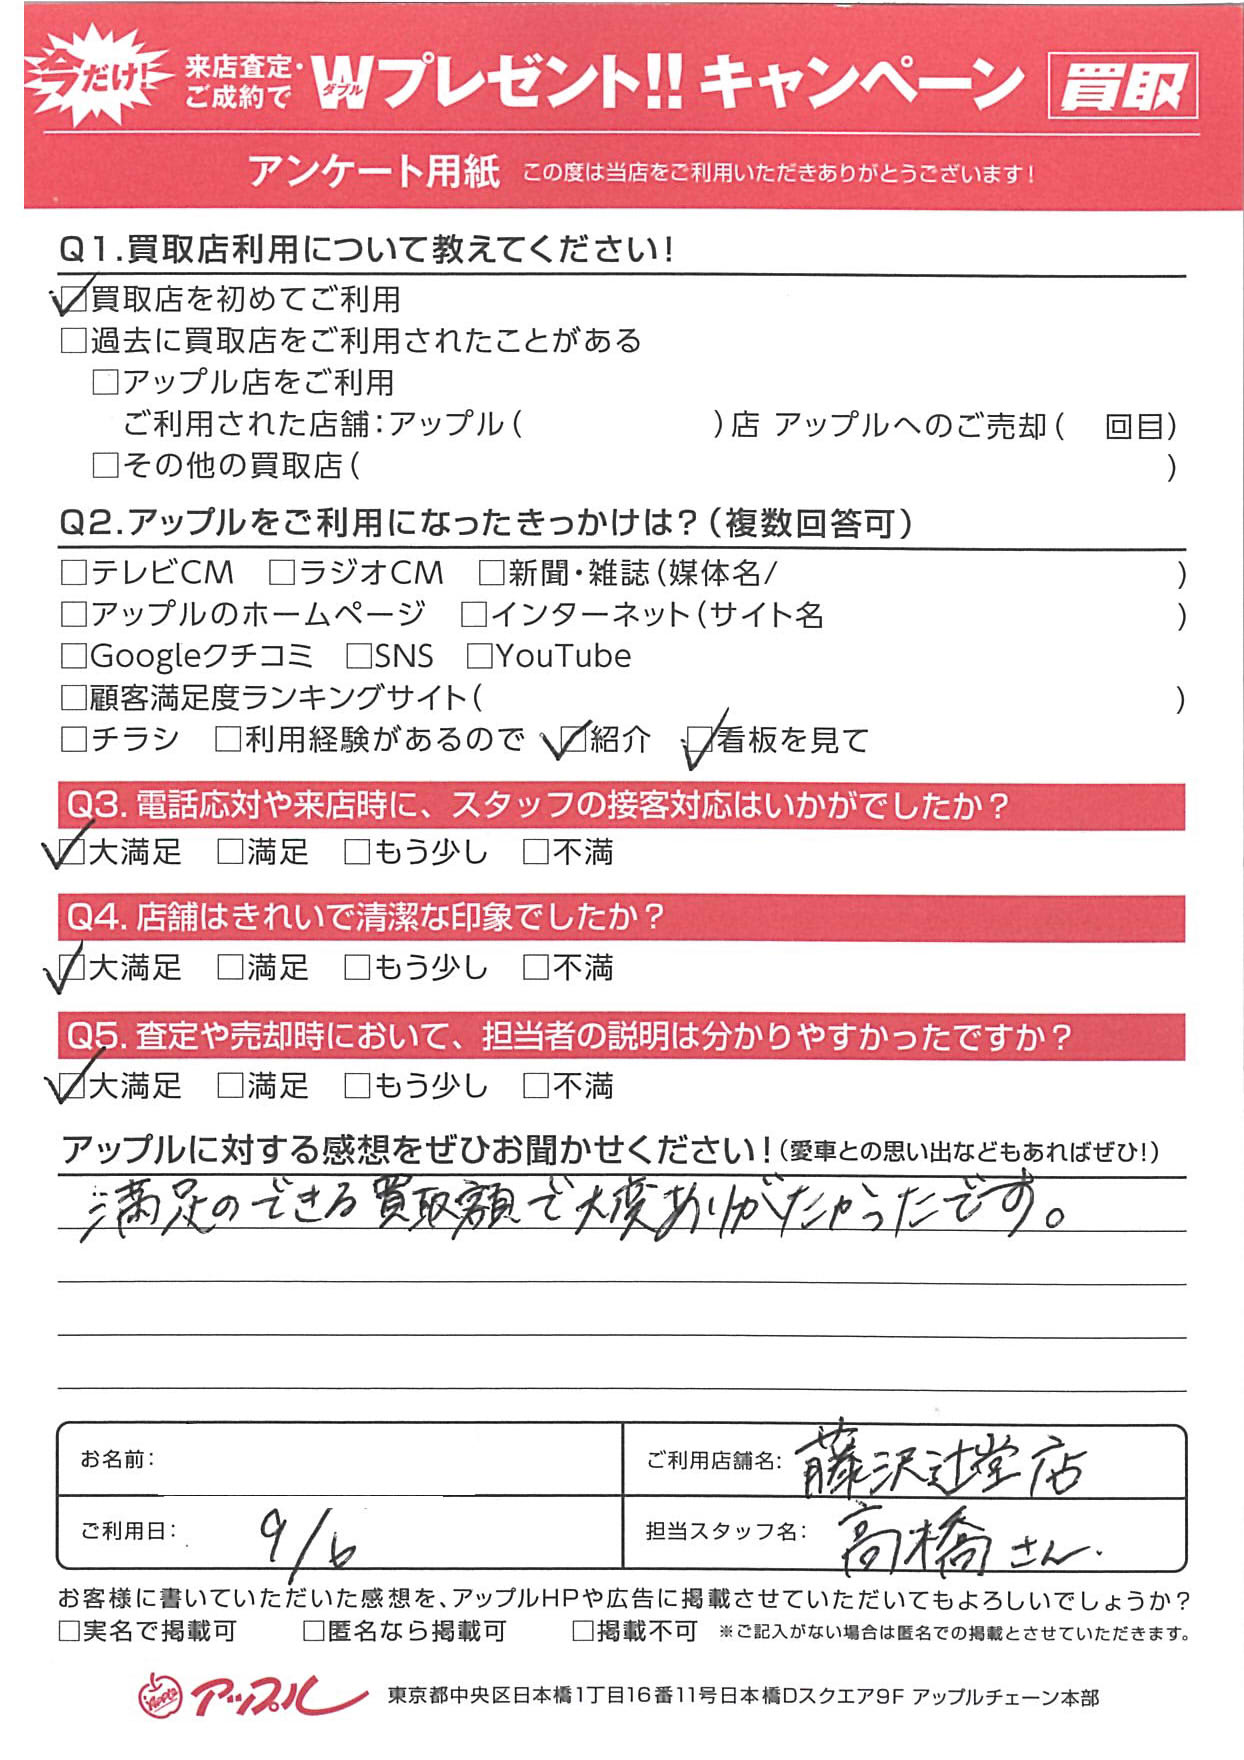 今だけ!
来店査定・ご成約で Wダブルプレゼント!! キャンペーン 買取
アンケート用紙 この度は当店をご利用いただきありがとうございます!
Q1.買取店利用について教えてください!
☑買取店を初めてご利用
□過去に買取店をご利用されたことがある
□アップル店をご利用
ご利用された店舗:アップル( )店 アップルへのご売却( 回目)
□その他の買取店( )
Q2.アップルをご利用になったきっかけは?(複数回答可)
□テレビCM □ラジオCM □新聞・雑誌(媒体名/ )
□アップルのホームページ □インターネット(サイト名 )
□Googleクチコミ □SNS □YouTube
□顧客満足度ランキングサイト( )
□チラシ □利用経験があるので ☑紹介 ☑看板を見て
Q3. 電話応対や来店時に、スタッフの接客対応はいかがでしたか?
☑大満足 □満足 □もう少し □不満
Q4. 店舗はきれいで清潔な印象でしたか?
☑大満足 □満足 □もう少し □不満
Q5. 査定や売却時において、担当者の説明は分かりやすかったですか?
☑大満足 □満足 □もう少し □不満
アップルに対する感想をぜひお聞かせください!(愛車との思い出などもあればぜひ!)
満足のできる買取額で大変ありがたかったです。
お名前: ご利用店舗名: 藤沢辻堂店
ご利用日: 9/6 担当スタッフ名: 高橋さん.
お客様に書いていただいた感想を、アップルHPや広告に掲載させていただいてもよろしいでしょうか?
□実名で掲載可 □匿名なら掲載可 □掲載不可 ※ご記入がない場合は匿名での掲載とさせていただきます。
Apple アップル 東京都中央区日本橋1丁目16番11号日本橋Dスクエア9F アップルチェーン本部